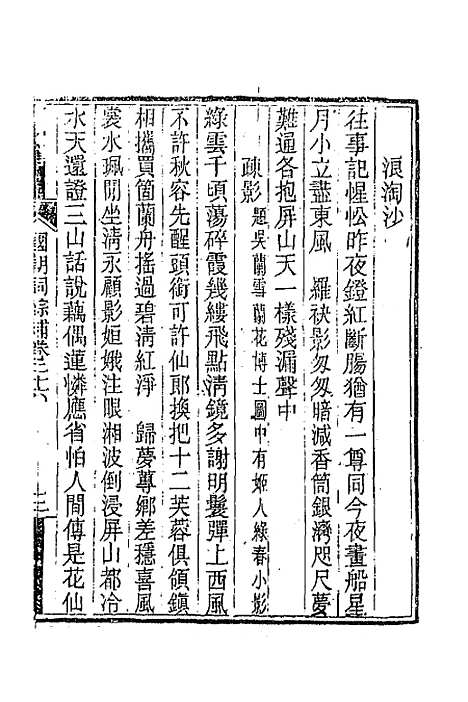 浪淘沙
往事記惺忪昨夜鐙紅斷腸猶有一尊同今夜畫船星
月小立盡東風　羅袂影匆匆暗減香筒銀灣咫尺夢
難通各抱屏山天一樣殘漏聲中
疎影題吳蘭雪蘭花博士圖中有姬人綠春小影
綠雲千頃蕩碎霞幾縷飛點清鏡多謝明鬟彈上西風
不許秋容先醒頭銜可許仙郎換把十二芙蓉俱領鎮
相攜買箇蘭舟搖過碧清紅淨　歸夢蓴鄉差穩喜風
裳水珮閒坐清永顧影姮娥注眼湘波倒浸屏山都冷
水天還證三山話說藕偶蓮憐應省怕人間傳是花仙
國朝詞綜補卷三十六
十三